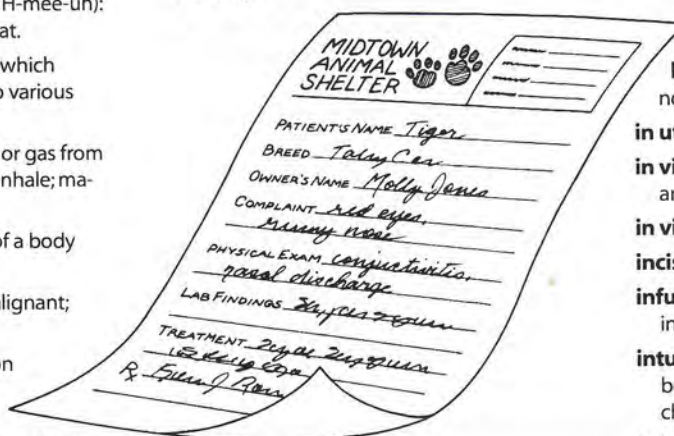 H-mee-uh):
at.
which
various
or gas from
nhale; ma-
of a body
alignant;
on
MIDTOWN
ANIMAL
SHELTER
PATIENT'S NAME Tiger
BREED Tabby Cat
OWNER'S NAME Molly Jones
COMPLAINT red eyes,
runny nose
PHYSICAL EXAM conjuctivitis,
nasal discharge
LAB FINDINGS
TREATMENT
Rx
no
in ut
in vi
an
in vi
incis
infu
in
intu
b
ch